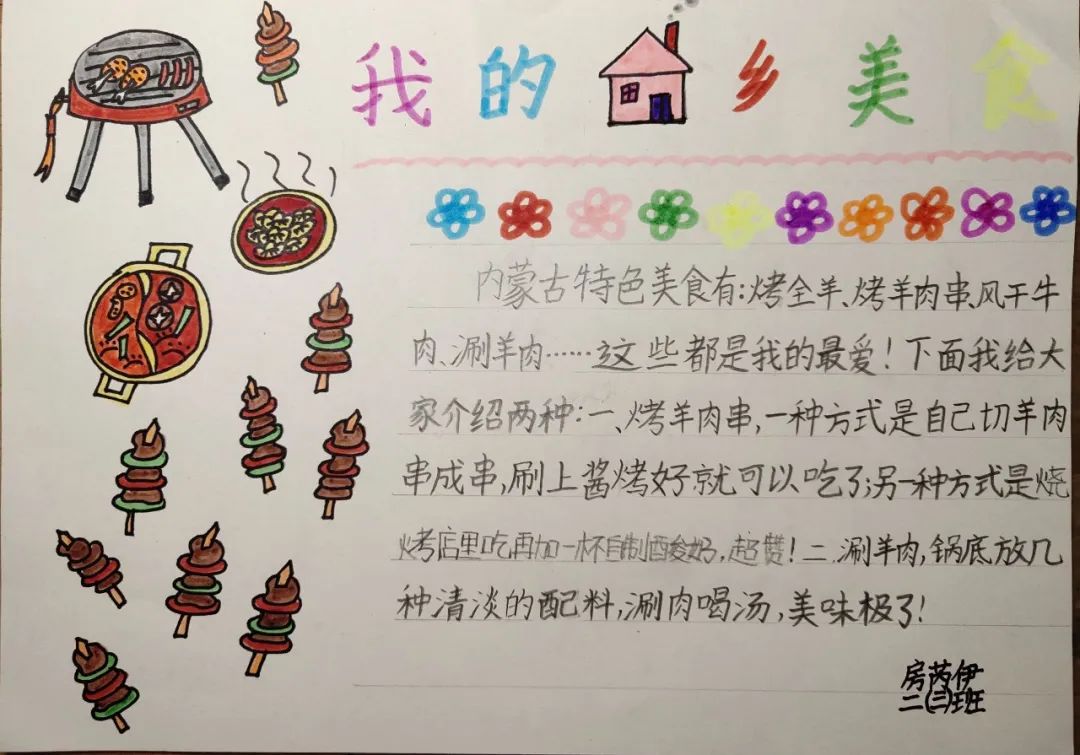 我的乡美食
内蒙古特色美食有:烤全羊、烤羊肉串、风干牛
肉、涮羊肉……这些都是我的最爱!下面我给大
家介绍两种:一、烤羊肉串,一种方式是自己切羊肉
串成串,刷上酱烤好就可以吃了;另一种方式是烧
烤店里吃再加一杯自制酸奶,超赞!二、涮羊肉,锅底放几
种清淡的配料,涮肉喝汤,美味极了!
房芮伊
二(三)班